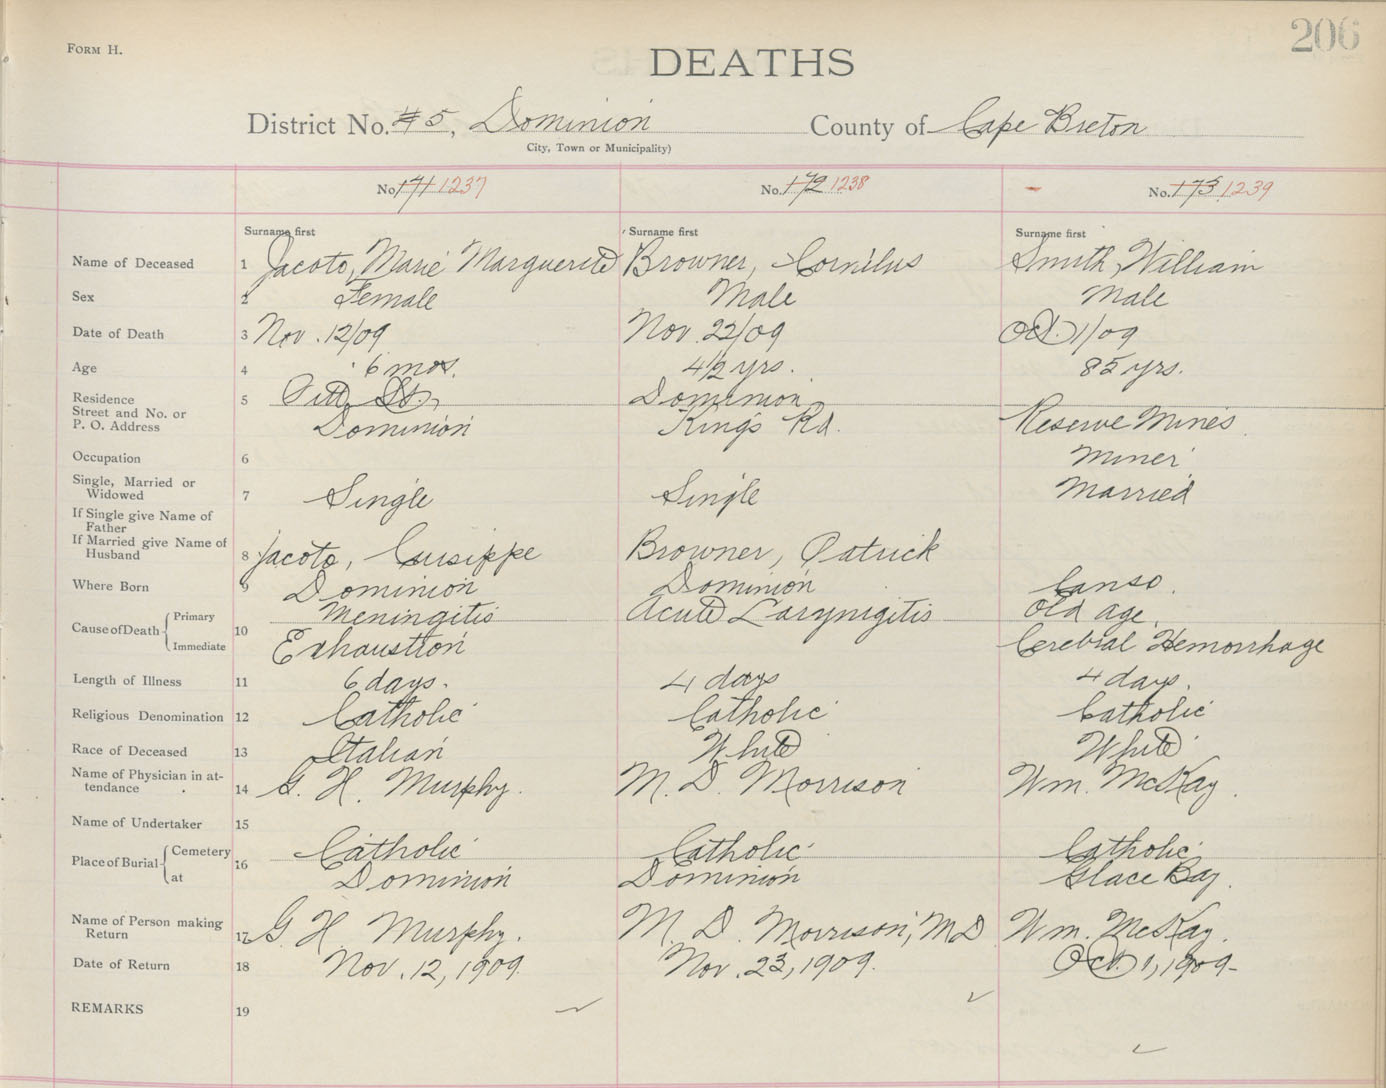 FORM H.
206
DEATHS
District No. #5, Dominion County of Cape Breton
City, Town or Municipality)
No. 171 1237 No. 172 1238 No. 173 1239
Surname first Surname first Surname first
Name of Deceased 1 Jacoto, Marie Marguerite Browner, Cornilus Smith, William
Sex 2 Female Male Male
Date of Death 3 Nov. 12/09 Nov. 22/09 Oct. 1/09
Age 4 6 mos. 4½ yrs. 85 yrs.
Residence 5 Pitt St., Dominion
Street and No. or
P. O. Address Dominion King's Rd. Reserve Mines
Occupation 6 Miner
Single, Married or
Widowed 7 Single Single Married
If Single give Name of
Father
If Married give Name of
Husband 8 Jacoto, Guisippe Browner, Patrick
Where Born 9 Dominion Dominion Canso.
Cause of Death Primary 10 Meningitis Acute Larynigitis Old age.
Immediate Exhaustion Cerebral Hemorrhage
Length of Illness 11 6 days. 4 days 4 days.
Religious Denomination 12 Catholic Catholic Catholic
Race of Deceased 13 Italian White White
Name of Physician in at-
tendance 14 G. H. Murphy. M. D. Morrison Wm. McKay.
Name of Undertaker 15
Place of Burial Cemetery 16 Catholic Catholic Catholic
at Dominion Dominion Glace Bay.
Name of Person making
Return 17 G. H. Murphy. M. D. Morrison, MD Wm. McKay.
Date of Return 18 Nov. 12, 1909. Nov. 23, 1909. Oct. 1, 1909-
REMARKS 19